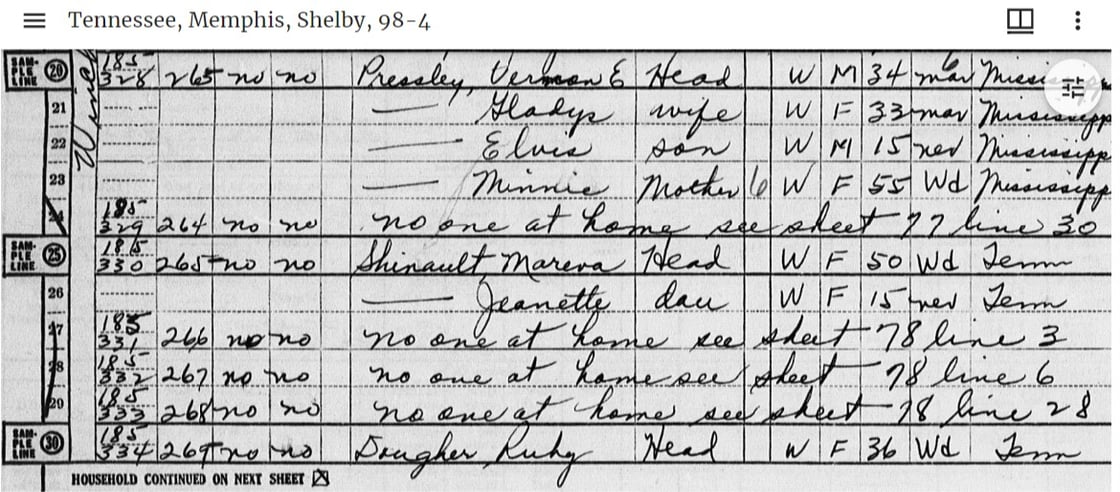 Tennessee, Memphis, Shelby, 98-4
SAM-PLE LINE 20 185 328 265 no no Pressley, Vernon E Head W M 34 mar
21 — Gladys wife W F 33 mar Mississipp
22 — Elvis son W M 15 nev Mississipp
23 — Minnie Mother 6 W F 55 Wd Mississipp
24 185 329 264 no no no one at home see sheet 77 line 30
SAM-PLE LINE 25 185 330 265 no no Shinault Mareva Head W F 50 Wd Tenn
26 — Jeanette dau W F 15 nev Tenn
27 185 331 266 no no no one at home see sheet 78 line 3
28 185 332 267 no no no one at home see sheet 78 line 6
29 185 333 268 no no no one at home see sheet 78 line 28
SAM-PLE LINE 30 185 334 269 no no Dougher Ruby Head W F 36 Wd Tenn
HOUSEHOLD CONTINUED ON NEXT SHEET